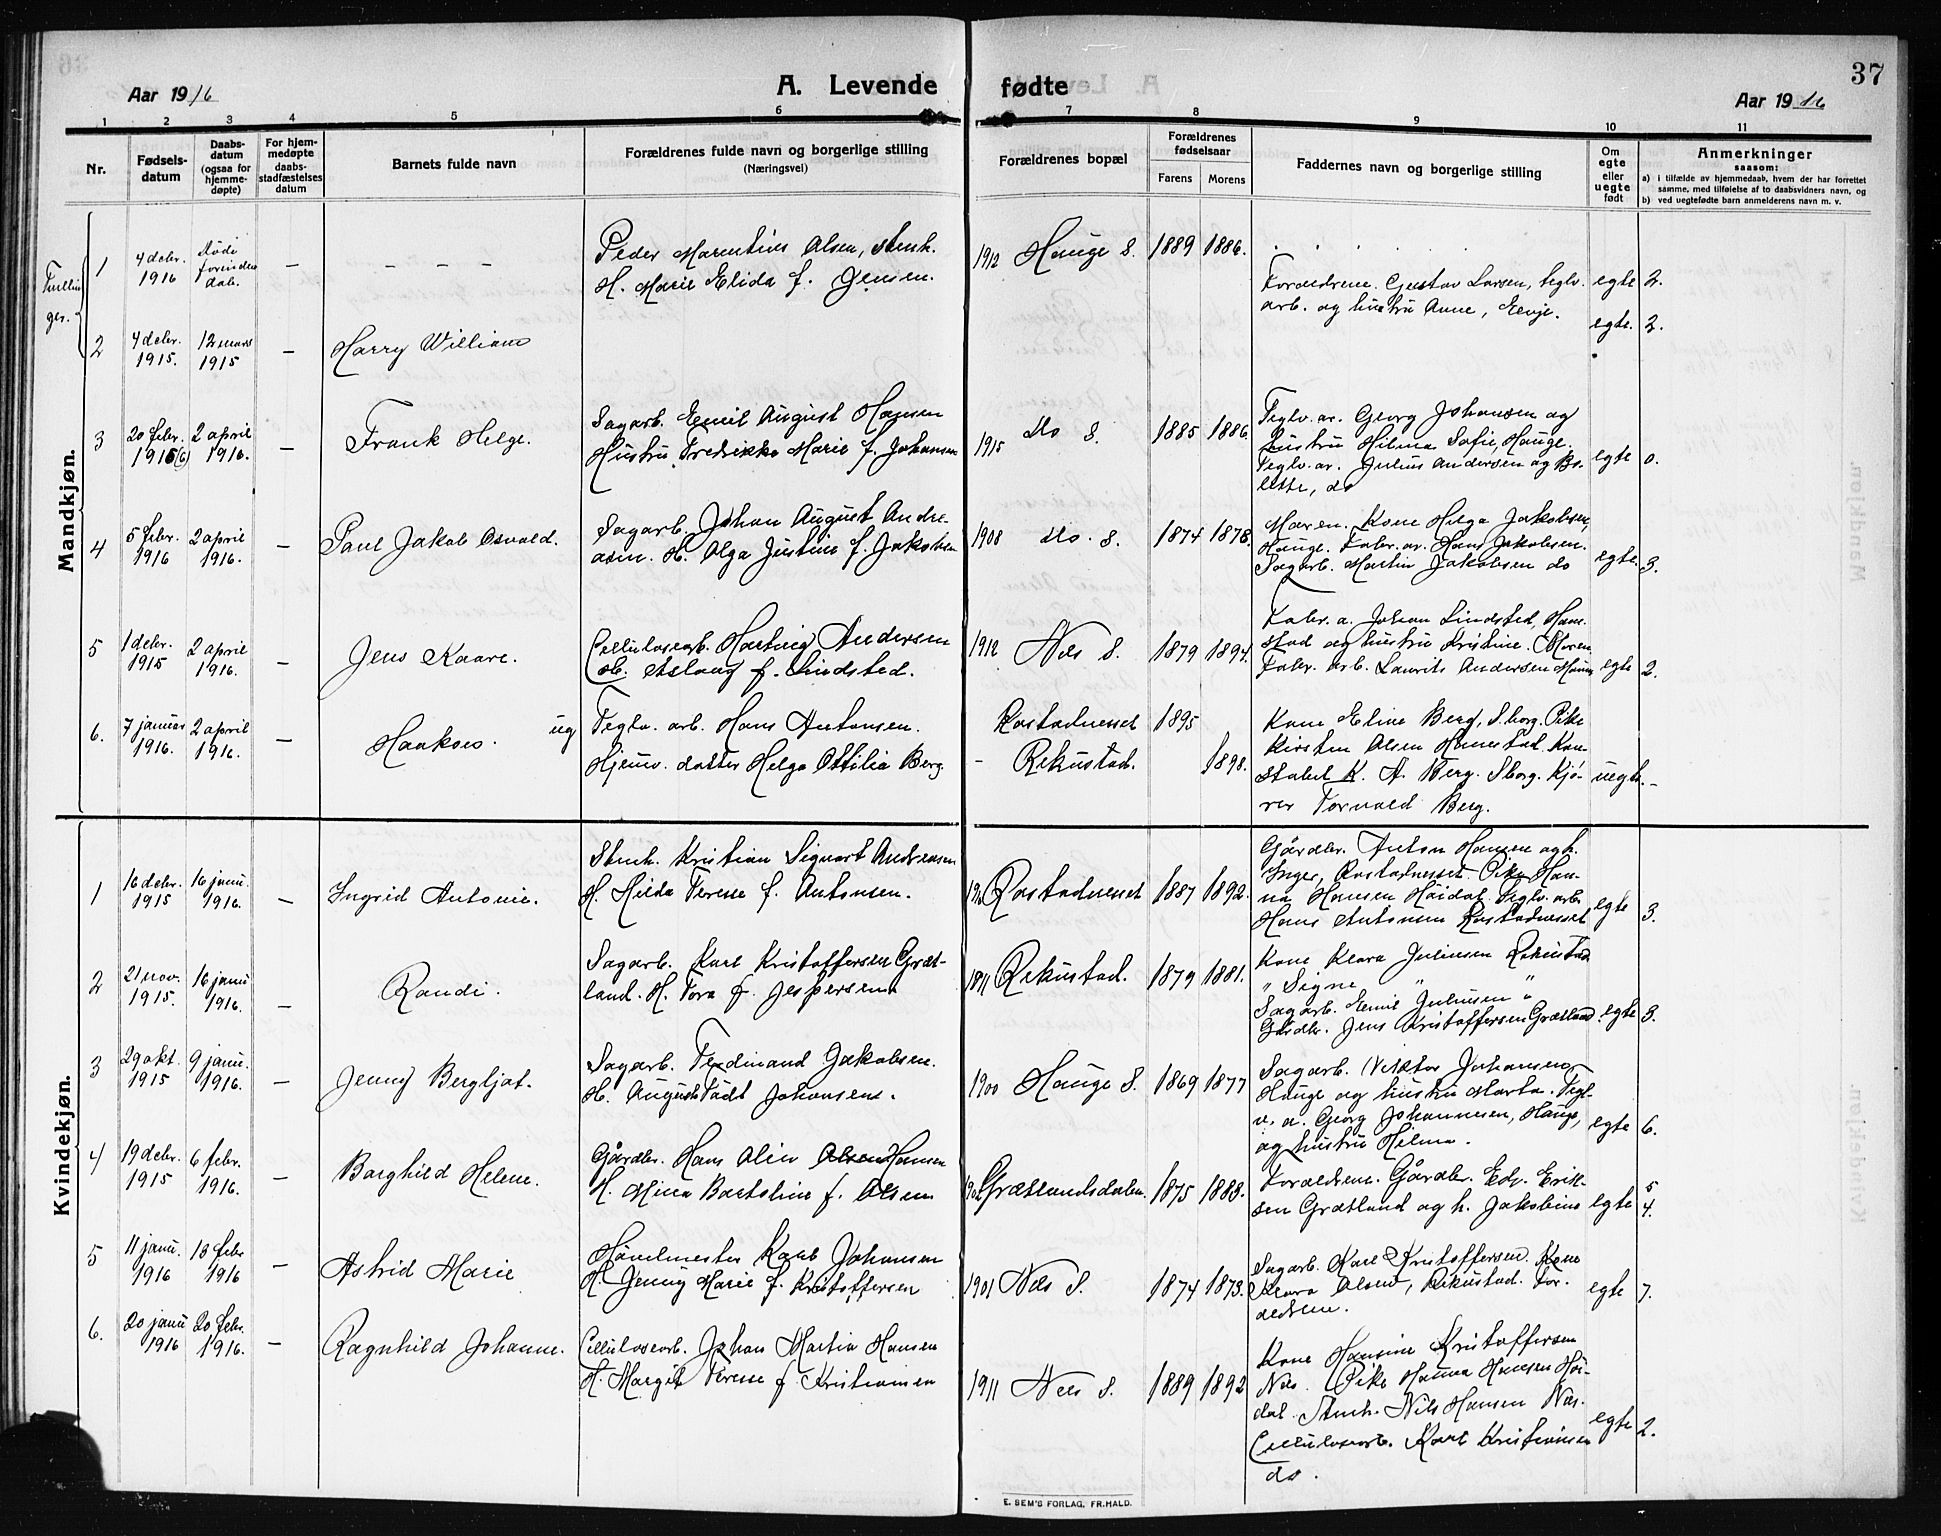 37
A. Levende fødte
Aar 1916
Aar 1916
1 2 3 4 5 6 7 8 9 10 11
Nr.
Fødsels-
datum
Daabs-
datum
(ogsaa for
hjemme-
døpte)
For hjem-
medøpte
daabs-
stadfæstelses
datum
Barnets fulde navn
Forældrenes fulde navn og borgerlige stilling
(Næringsvei)
Forældrenes bopæl
Forældrenes
fødselsaar
Farens Morens
Faddernes navn og borgerlige stilling
Om
egte
eller
uegte
født
Anmerkninger
saasom:
a) i tilfælde av hjemmedaab, hvem der har forrettet
samme, med tilføielse af to daabsvidners navn, og
b) ved uegtefødte barn anmelderens navn m. v.
Mandkjøn.
1 4 debr. 1916 Død forinden daab. — — — — —
Peder Marentius Olsen, stenh.
H. Marie Elida f. Jensen.
1912 Hauge S. 1889 1886.
Forældrene. Gustav Larsen, teglv.
arb. og hustru Anne, Eevje.
egte 2.
2 4 debr. 1915. 12 mars 1915 — Harry William
egte. 2.
3 20 febr. 1915(6) 2 april 1916. — Frank Helge.
Sagarb. Emil August Hansen
Hustru Fredrikke Marie f. Johansen
1915 do S. 1885 1886.
Teglv. ar. Georg Johansen og
hustru Hilma Sofie, Hauge.
Teglv. ar. Julius Andersen og Bo-
lette, do
egte 0.
4 5 febr. 1916 2 april 1916. — Paul Jakob Osvald.
Sagarb. Johan August Andre-
asen. H. Olga Justine f. Jakobsen
1908 do. S. 1874 1878.
Maren. Kone Helga Jakobsen,
Hauge. Fabr. ar. Hans Jakobsen.
Sagarb. Martin Jakobsen do
egte. 3.
5 1 debr. 1915 2 april 1916. — Jens Kaare.
Cellulosearb. Hartvig Andersen
H. Aslaug f. Lindsted.
1912 Næs S. 1879 1894.
Fabr. a. Johan Lindsted, Ham-
stad og hustru Kristine. Maren
Fabr. arb. Laurits Andersen
egte 2.
6. 7 januar 1916. 2 april 1916. — Haakon. ug
Teglv. arb. Hans Antonsen.
Hjemv. datter Helga Ottilia Berg
Rostadnesset 1895
— Rekustad. 1898.
Kone Eline Berg, S.borg. Pike
Kirsten Olsen Hamestad. Kon-
stabel K. A. Berg. S.borg. Kjø-
rer Torvald Berg.
uegte. —
Kvindekjøn.
1 16 debr. 1915 16 janu. 1916. — Ingrid Antonie.
Stenh. Kristian Sigvart Andreasen
H. Hilda Terese f. Antonsen.
Rostadnesset 1887 1892.
Gårdbr. Anton Hansen og h.
Inger, Rostadnesset. Pike Han-
na Hansen Høidal. Teglv. arb.
Hans Antonsen Rostadnesset
egte 3.
2 21 nov. 1915. 16 janu 1916. — Randi.
Sagarb. Karl Kristoffersen Græt-
land. H. Tora f. Jespersen
1911 Rekustad. 1879 1881.
Kone Klara Juliusen Rekustad
" Signe "
Sagarb. Emil Juliusen "
Gårdbr. Jens Kristoffersen Grætland
egte 3.
3 29 okt. 1915 9 janu. 1916. — Jenny Bergljot.
Sagarb. Ferdinand Jakobsen.
H. Augusta født Johansen.
1900 Hauge S. 1869 1877
Sagarb. Viktor Johansen,
Hauge og hustru Marta. Tegl-
v. a. Georg Johannesen, Hauge,
og hustru Hilma.
egte 6.
4 19 debr. 1915 6 febr. 1916. — Borghild Helene.
Gårdbr. Hans Oliv Olsen Hansen
H. Mina Bartoline f. Olsen
Grætlandsdalen. 1875 1888.
Forældrene. Gårdbr. Edv. Erik-
sen Grætland og h. Jakobine
egte 5 4.
5 11 janu. 1916 13 febr 1916 — Astrid Marie
Høvelmester Karl Johansen
H. Jenny Marie f. Kristoffersen
1901 Næs S. 1874 1873.
Sagarb. Karl Kristoffersen. Kone
Klara Olsen, Rekustad. For-
ældrene.
egte 7.
6. 20 janu 1916 20 febr. 1916. — Ragnhild Johanne.
Cellulosearb. Johan Martin Hansen
H. Margit Terese f. Kristiansen
1911 Næs S. 1889 1892
Kone Hansine Kristoffersen
Næs. Pike Hanna Hansen Høi-
dal. Stenh. Nils Hansen Næs.
Cellulosearb. Karl Kristiansen
do.
egte 2.
E. SEM'S FORLAG, FR.HALD.